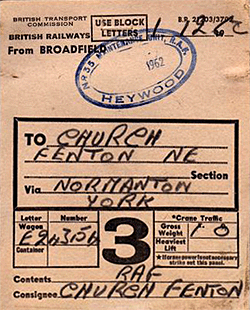 BRITISH TRANSPORT
COMMISSION
USE BLOCK
LETTERS
BRITISH RAILWAYS
From BROADFIELD
Nº 35 MAINTENANCE UNIT, R.A.F.
1962
HEYWOOD
TO CHURCH
FENTON NE
Section
Via NORMANTON
YORK
Letter Number
Wagon
Container
3
*Crane Traffic
Gross
Weight
Heaviest
Lift
*If crane power not necessary
strike out this panel.
Contents RAF
Consignee CHURCH FENTON